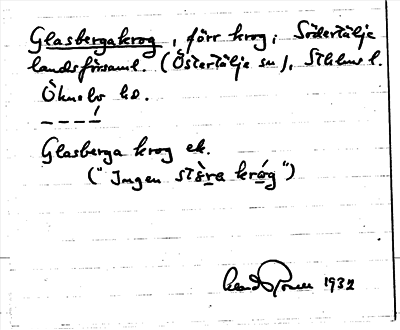 Glasbergakrog, förr krog, Södertälje
landsförsaml. (Östertälje sn), Sthlms l.
Öknebo hd.
Glasberga krog ek.
("Ingen större krog")
1932